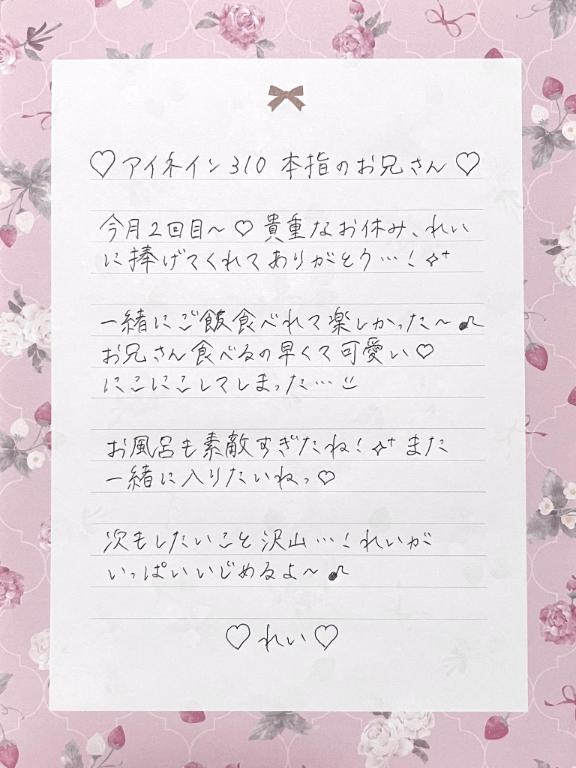 ♡アイネイン310 本指のお兄さん♡
今月2回目〜♡貴重なお休み、れい
に捧げてくれてありがとう…!✧⁺
一緒にご飯食べれて楽しかった〜♪
お兄さん食べるの早くて可愛い♡
にこにこしてしまった…☺
お風呂も素敵すぎたね!✧⁺また
一緒に入りたいねっ♡
次もしたいこと沢山…!れいが
いっぱいいじめるよ〜♪
♡れい♡